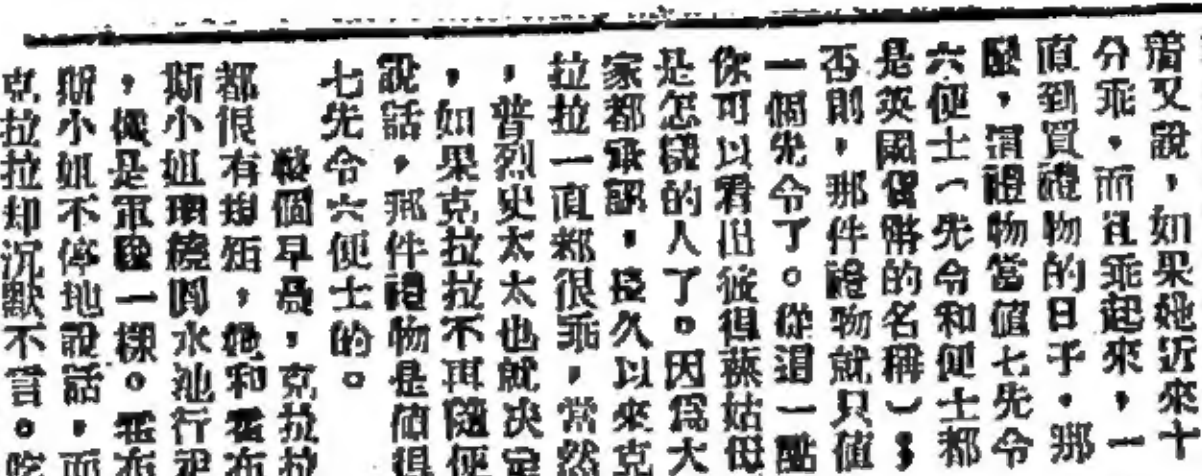 着又說，如果她近來十
分乖，而且乖起來，一
直到買禮物的日子，那
麼，這禮物當值七先令
六便士（先令和便士都
是英國貨幣的名稱）；
否則，那件禮物就只值
一個先令了。從這一點
你可以看出彼得蘇姑母
是怎樣的人了。因爲大
家都承認，長久以來克
拉拉一直都很乖，當然
，普烈史太太也就决定
，如果克拉拉不再隨便
說話，那件禮物是值得
七先令六便士的。
整個早晨，克拉拉
都很有規矩，她和霍布
斯小姐環繞圓水池行
，像是軍隊一樣。霍布
斯小姐不停地說話，而
克拉拉却沉默不言。吃